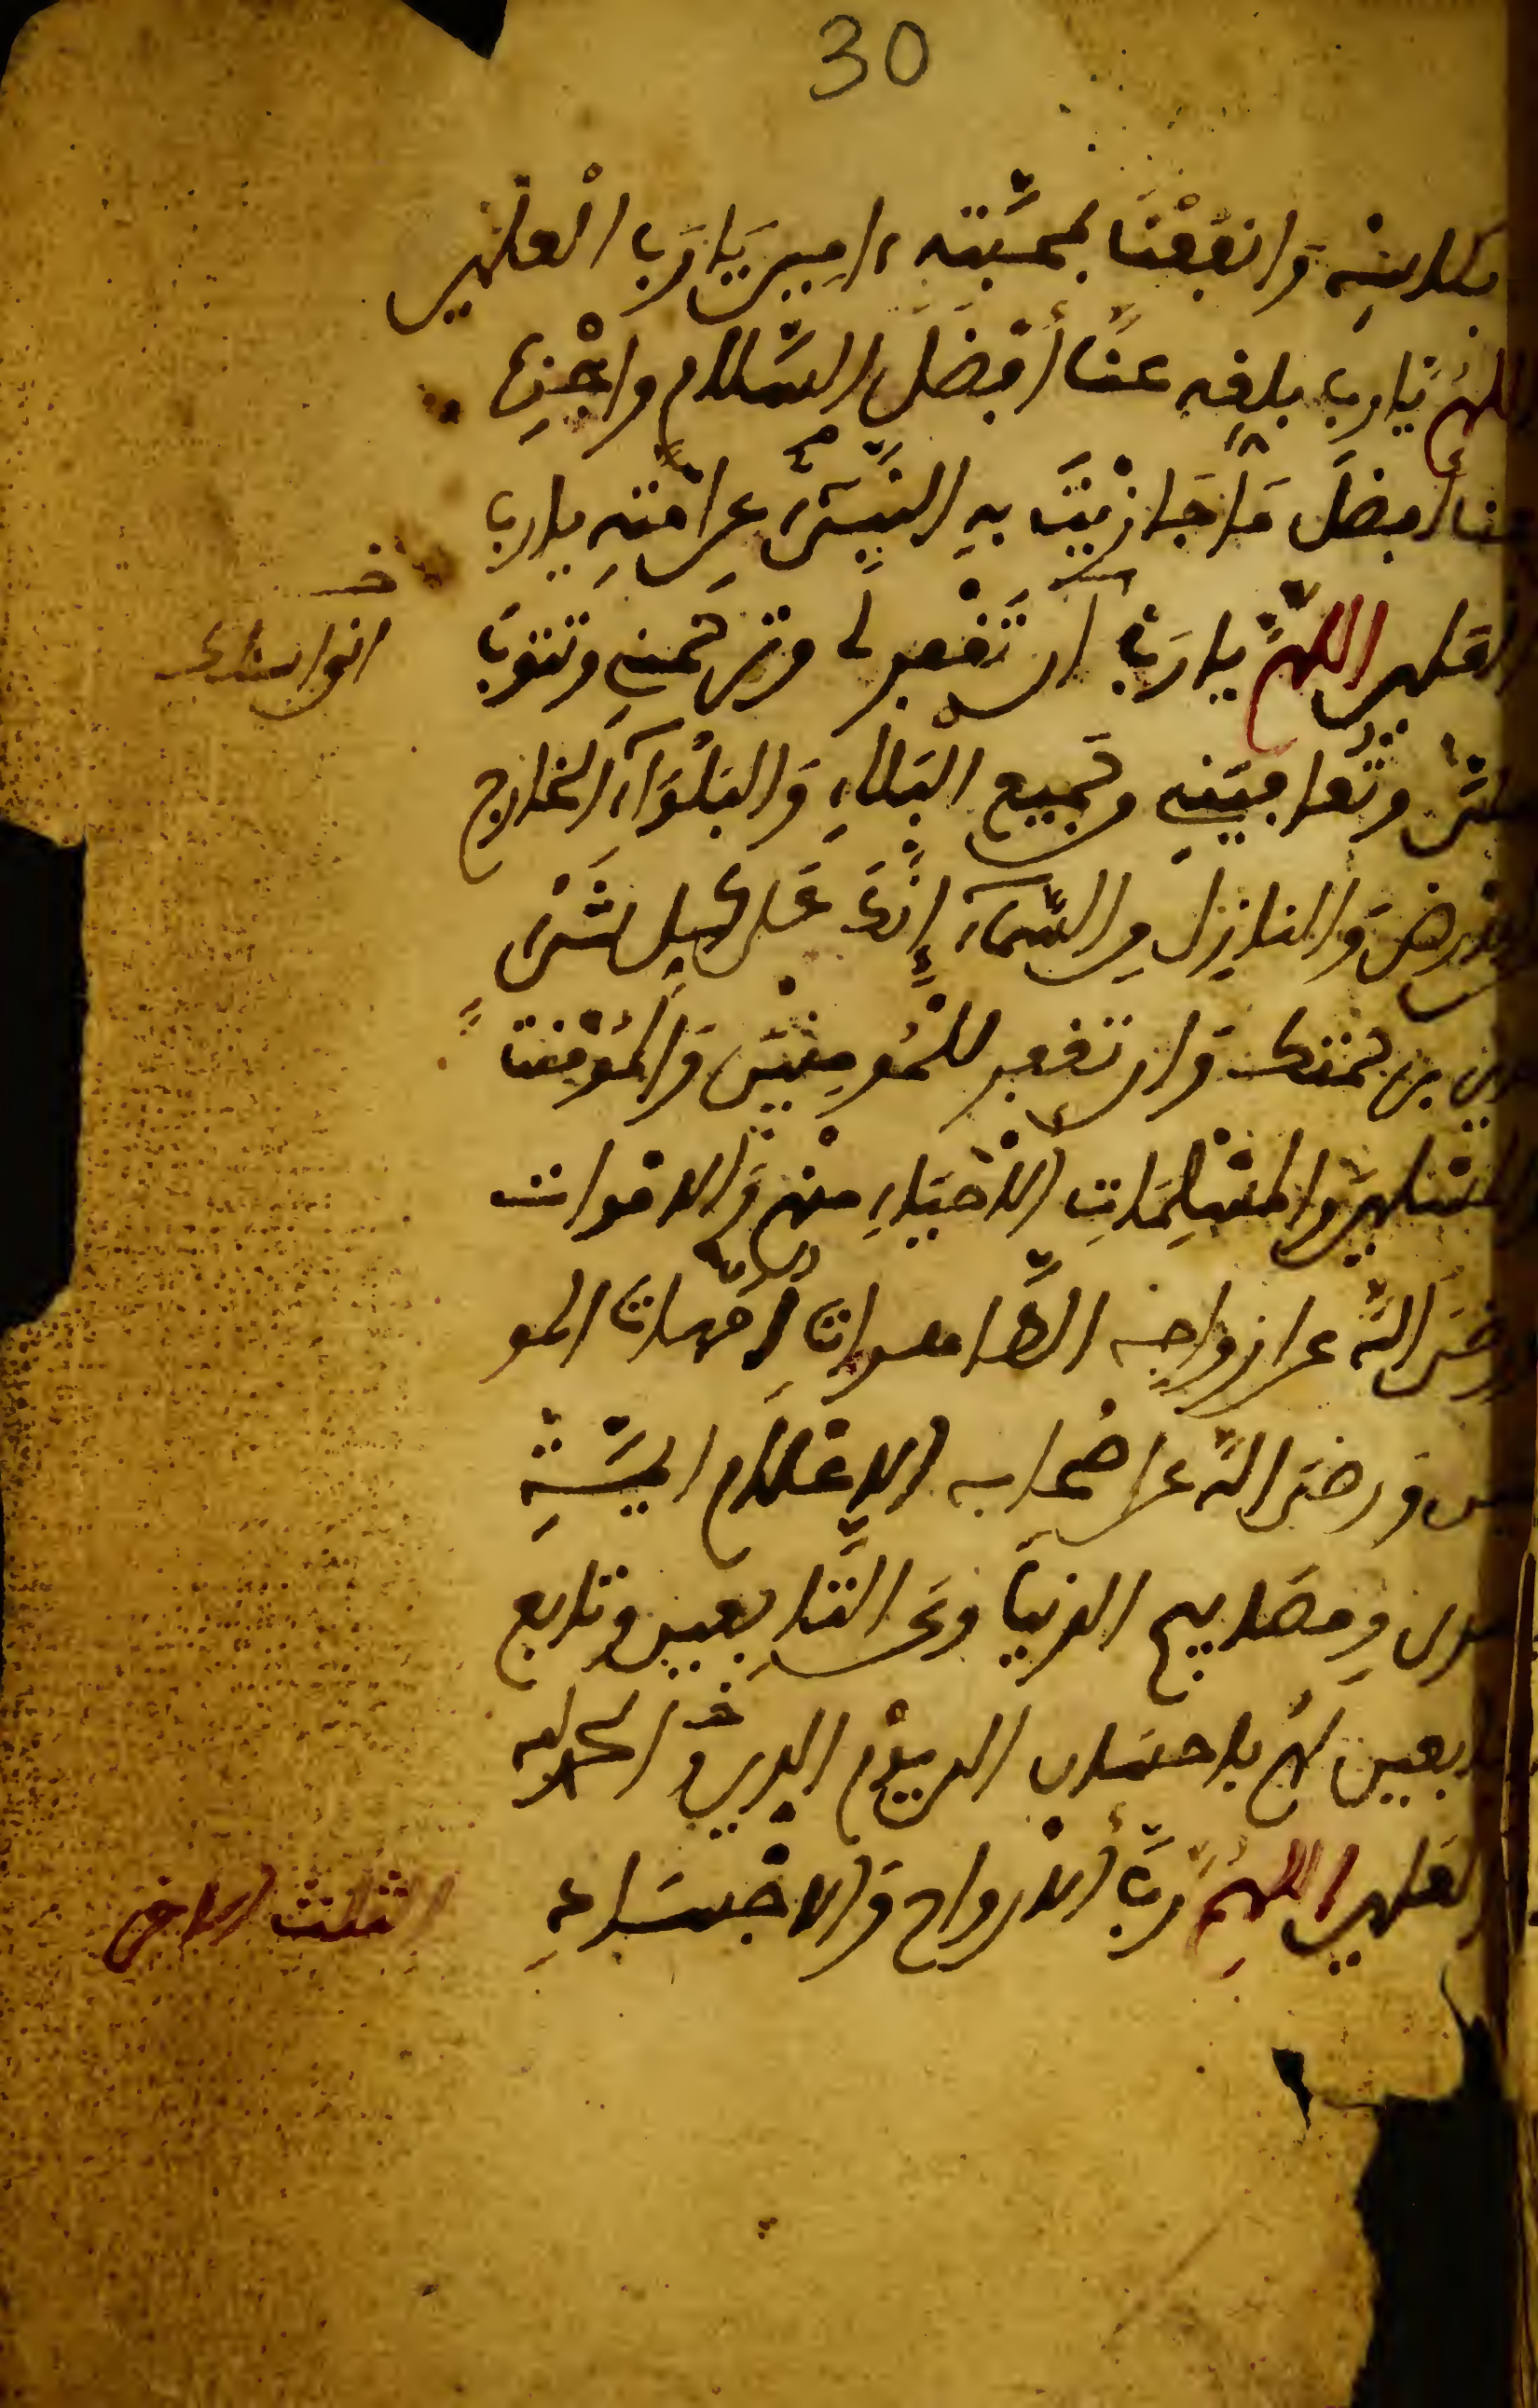 30
بكأسه وانفعنا بمحبته ءامين يا رب العلمين
اللهم يا رب بلغه عنا أفضل السلام واجزه
عنا أفضل ما جازيت به النبيء عن امته يا رب
العلمين اللهم يا رب أن تغفر لي وترحمني وتتوب
انى اسئلك
علي وتعافيني من جميع البلاء والبلواء الخارج
من الارض والنازل من السماء إنك على كل شيء
قدير برحمتك وان تغفر للمومنين والمومنت
والمسلمين والمسلمات الأحياء منهم والاموات
ورضي الله عن ازواجه الطاهرات أمهات المو
منين ورضي الله عن اصحابه الاعلام ايمة
الهدى ومصابيح الدنيا وعن التابعين وتابع
التابعين لهم باحسان الى يوم الدين والحمد لله
رب العلمين اللهم رب الأرواح والاجساد
الثلث الاخر